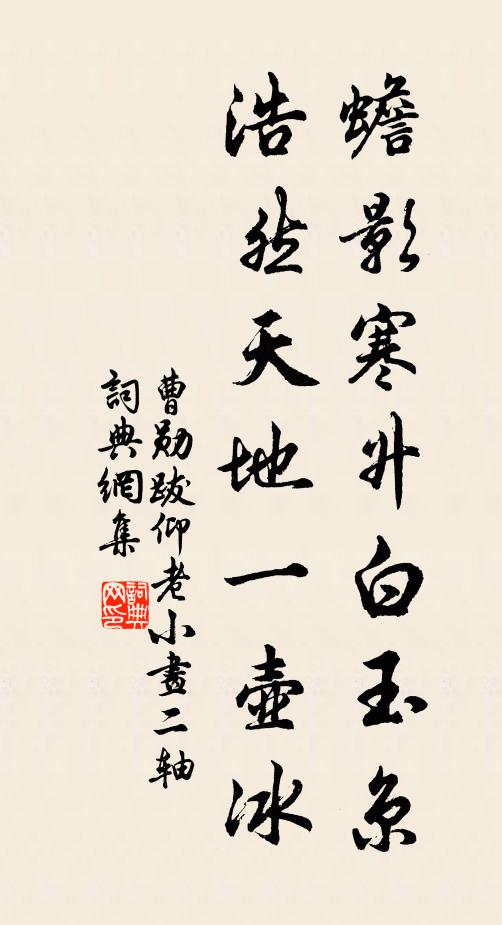 蟾影寒升白玉京
浩然天地一壺冰
曹勛跋仰老小畫二軸
詞典網集
詞典网印